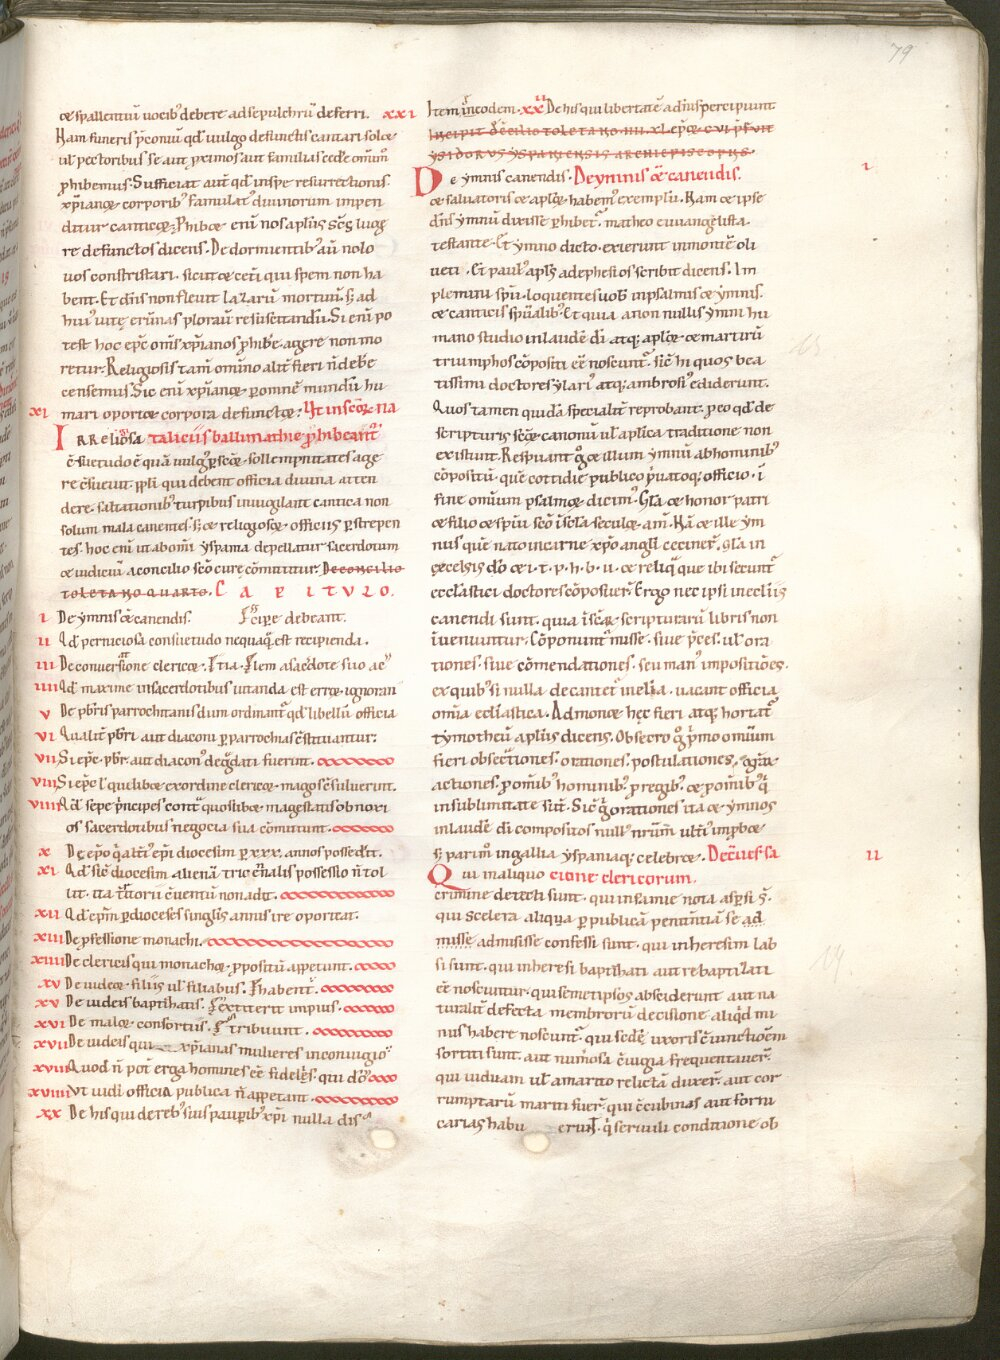 79
& psallentiũ uocib; debere ad sepulchrũ deferri.
Nam funeris p̃coniũ qd̃ uulgo defunctis cantari solet
ul̃ pectoribus se aut p̃ximos aut familias cede omĩum
p̃hibemus. Sufficiat aut̃ qd̃ in spe resurrectionis
xp̃iano& corporib; famulat᷒ diuinorum impen
ditur cantico&. Phib& enĩ nos apl̃us sc̃s luge
re defunctos dicens. De dormientib; aũ nolo
uos constristari. sicut & cet̃i qui spem non ha
bent. Et dñs non fleuit lazarũ mortuũ. s; ad
hui᷒ uitę erũnas plorauit resuscitandũ. Si enĩ po
test hoc epc̃ om̃s xp̃ianos p̃hibe. agere non mo
retur. Religiosis tam̃ om̃ino alit̃ fieri ñ debe
censemus. Sic enĩ xp̃iano& per omne mundũ hu
xi mari oport& corpora defuncto&. Vt in sc̃o& na
Irreliosa taliciis ballimathie p̃hibeant᷒
c̃suetudo ẽ quã uulg᷒ p sc̃o& sollempnitates age
re c̃sueuit ppl̃i qui debent officia diuina atten
dere. saltationib; turpibus inuigilant cantica non
solum mala canentes. s; & religioso& officiis p strepen
tes. hoc enĩ ut ab om̃i yspania depellatur sacerdotum
& iudiciũ a concilio sc̃o cure cõmittitur. De concilio
toletano quarto. CAPITVLO.
i De ymnis c̃e canendis. scipẽ debeant.
ii Qd̃ perniciosa consuetudo nequaq̃ est recipienda.
iii De conuersione clerico&.
iiii Qd̃ maxime in sacerdotibus uitanda est erro& ignoran
v De pbr̃is parrochitanis dum ordinant᷒ qd̃ libellũ officia
vi Qualit̃ pbr̃i aut diaconi p parrochias c̃stituantur:
vii Si ep̃c. pbr̃. aut diacon᷒ degdati fuerint.
viii Si ep̃c l̃ quilib& ex ordine clerico& magos c̃suluerint.
viiii Qd̃ sepe p̃ncipes cont̃ quoslib& magestatis obnoxi
os sacerdotibus negocia sua cõmittunt.
x De ep̃o q̃ alt̃i᷒ ep̃i diocesim p xxx. annos possed̃it.
xi Qd̃ sic̃ diocesim alienã tric̃nalis possessio ñ tol
lit. ita t̃ritorii c̃uentũ non adit.
xii Qd̃ ep̃m p dioceses singlis annis ire oporteat.
xiii De p̃fessione monachi.
xiiii De clericis qui monacho& p̃positũ appetunt.
xv De iudeo& filiis ul̃ filiabus. habent᷒.
xv De iudeis baptizatis. extiterit impius.
xvi De malo& consortiis. tribuunt.
xvii De iudeis qui xp̃ianas mulieres in coniugio
xviii Quod ñ pot̃ erga homines ẽe fidel̃. qui dõ
xviiii Vt iudi officia publica ñ appetant.
xx De his qui de reb; suis pauperib; xp̃i nulla dis
xxi Item in eodem. xxii De his qui libertatẽ a dñis percipiunt
Incipit de c̃cilio toletano iiii. xl. ep̃o& cui p̃fuit
ysidorus yspaniensis archiepiscopus.
De ymnis canendis. De ymnis c̃e canendis. i
& saluatoris & aplo& habem᷒ exemplũ. Nam & ipse
dñs ymnũ dixisse perhibet᷒. matheo euuangl̃ista
testante. Et ymno dicto. exierunt in montẽ oli
ueti. Et paul᷒ apls̃ ad ephesios scribit dicens. Im
plemini spũ. loquentes uob̃ in psalmis & ymnis.
& canticis spũalib; Et quia a non nullis ymni hu
mano studio in laudẽ dĩ atq; aplo& & martirũ
triumphos cõpositi ẽe noscunt᷒. sic̃ hi quos bea
tissimi doctores ylari᷒ atq; ambrosi᷒ ediderunt.
Quos tamen quidã specialit̃ reprobant. p eo qd̃ de
scripturis sc̃o& canonũ ul̃ apl̃ica traditione non
existunt. Respuant g̃ & illum ymnũ ab hominib;
cõpositũ. quẽ cottidie publico p̃uatoq; officio. ĩ
fine omnium psalmo& dicim᷒. Gl̃a & honor patri
& filio & spĩui sc̃o ĩ sc̃la seculo& am̃. Nã & ille ym
nus quẽ nato in carne xp̃o angl̃i cecinert̃. gl̃a in
excelsis dõ & i. t. p. h. b. u. & reliq̃ que ibi secunt᷒
ecclãstici doctores cõposuer̃. Ergo nec ipsi in ecl̃iis
canendi sunt. quia ĩ sc̃o& scripturarũ libris non
ĩueniuntur. Cõponunt᷒ misse. siue p̃ces. ul̃ ora
tiones. siue cõmendationes. seu man᷒ impositiões.
ex quib; si nulla decantet᷒ in ecl̃ia. uacant officia
om̃ia ecl̃iastica. Admon& hęc fieri atq; hortat᷒
tymotheũ apl̃us dicens. Obsecro g̃ p̃mo omnium
fieri obsecr̃tiones. orationes. postulationes. gr̃a&
actiones. p om̃ib; hominib; p regib; & p om̃ib; q̃
in sublimitate sũt. Sic̃ g̃ orationes ita & ymnos
in laudẽ dĩ compositos null᷒ nr̃um ult̃i᷒ improbe
s; pari m̃ in gallia yspaniaq; celebre&. De c̃uersa ii
Qui in aliquo cione clericorum.
crimine detecti sunt. qui infamie nota asp̃si s̃.
qui scelera aliqua p publicã penitentiã se ad
misse admisisse confessi sunt. qui in heresim lab
si sunt. qui in heresi baptizati aut rebaptizati
ẽe noscuntur. qui semetipsos absciderunt aut na
turali defectu membrorũ decisione aliqd̃ mi
nus habere noscunt᷒. qui scdẽ uxoris c̃iunctioẽm
sortiti sunt. aut num̃osa c̃iugia frequentauer̃.
qui uiduam ul̃ a marito relictã duxer̃. aut cor
ruptarũ mariti fuer̃. qui c̃cubinas aut forni
carias habuerunt. q̃ seruili conditione ob